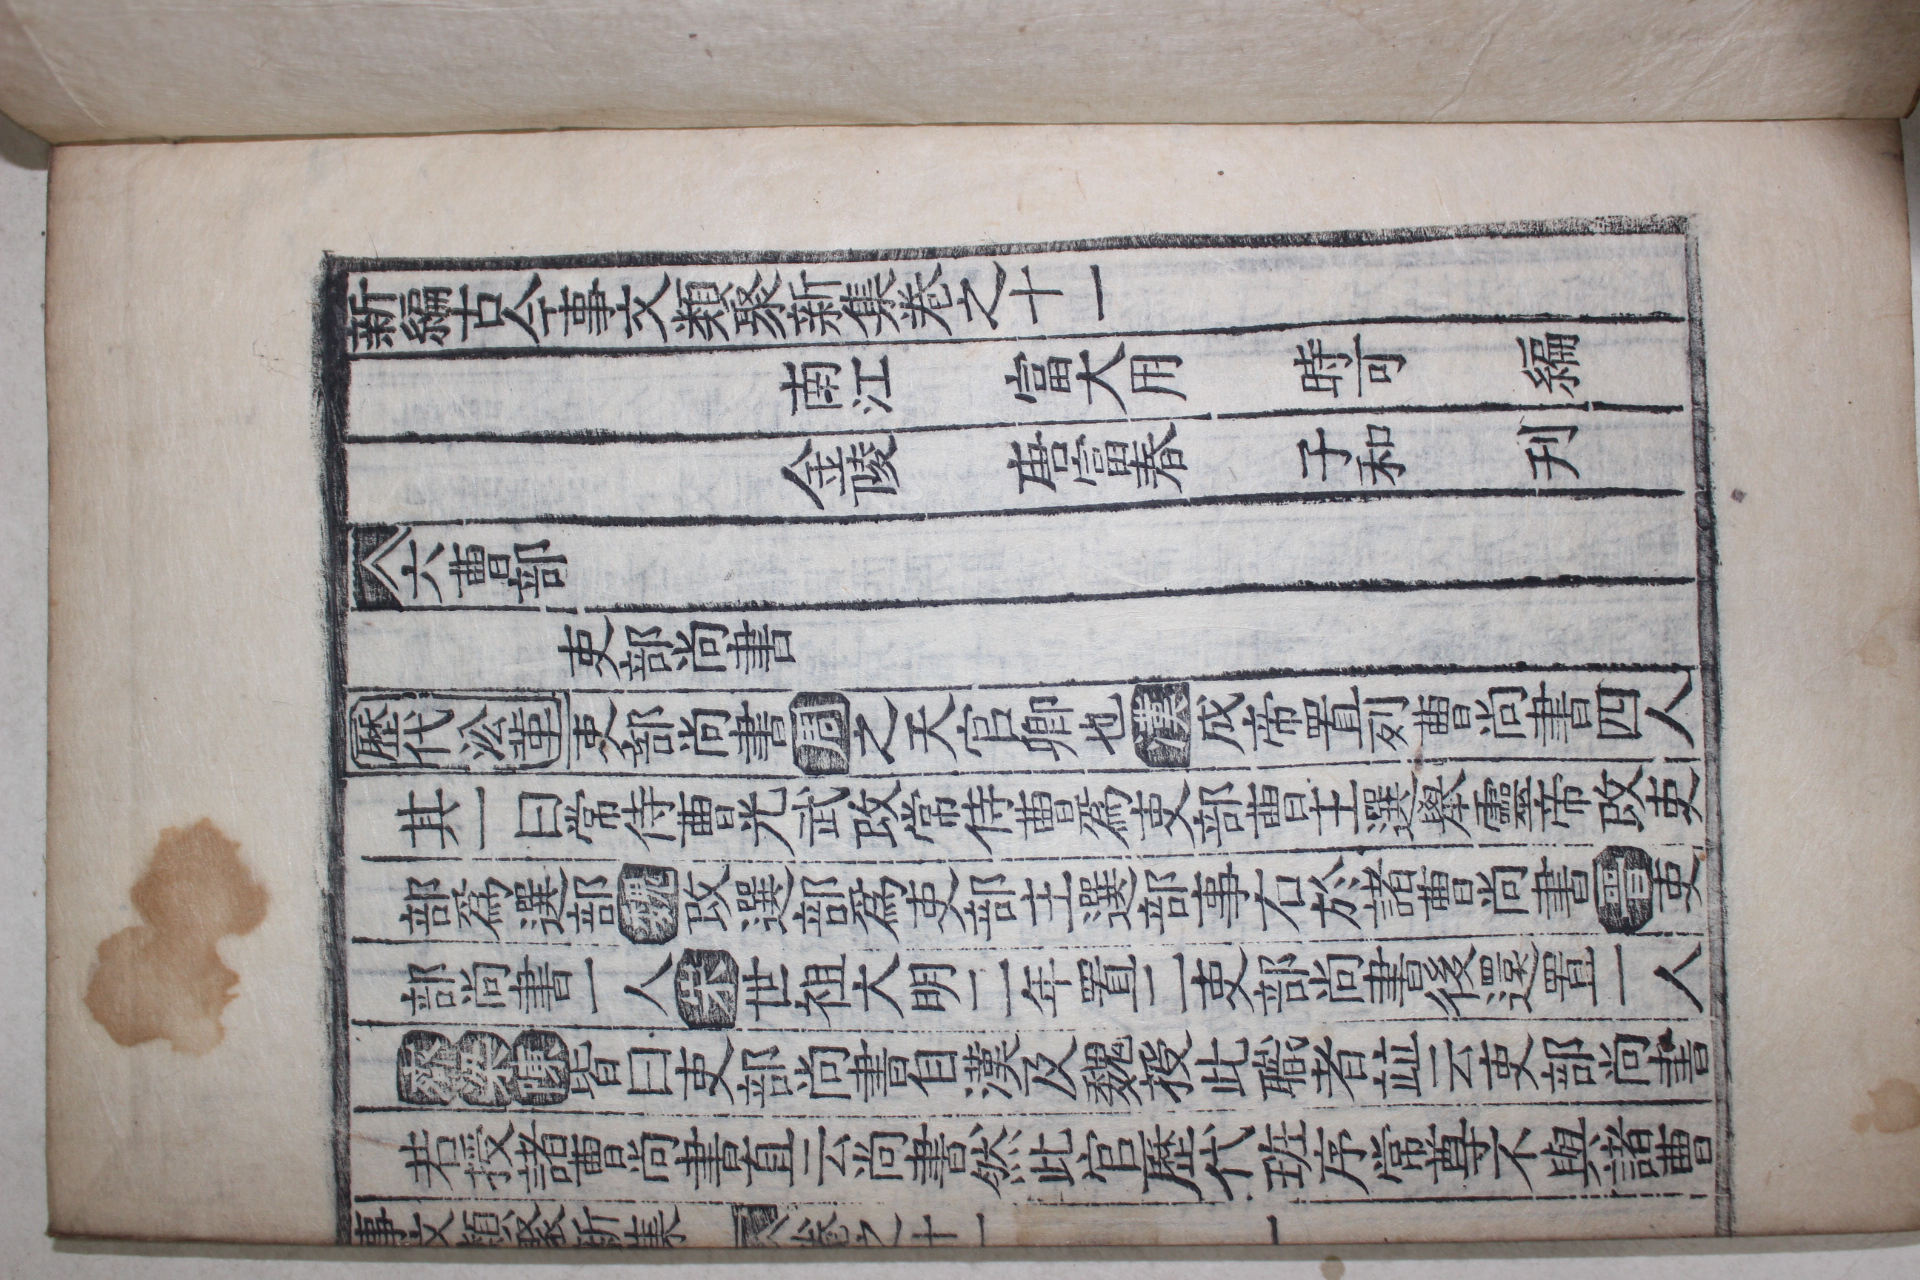 新編古今事文類聚新集卷之十一
南江 富大用 時可 編
金陵 唐富春 子和 刋
六曹部
吏部尚書
歷代沿革 吏部尚書周之天官卿也漢成帝置列曹尚書四人
其一曰常侍曹光武改常侍曹爲吏部曹主選舉靈帝改吏
部爲選部魏改選部爲吏部主選部事右於諸曹尚書晉吏
部尚書一人宋世祖大明二年置二吏部尚書後還置一人
齊梁陳皆曰吏部尚書自漢及魏授此職者竝云吏部尚書
若授諸曹尚書直云尚書然此官歷代班序常尊不與諸曹
事文類聚新集 卷之十一 一